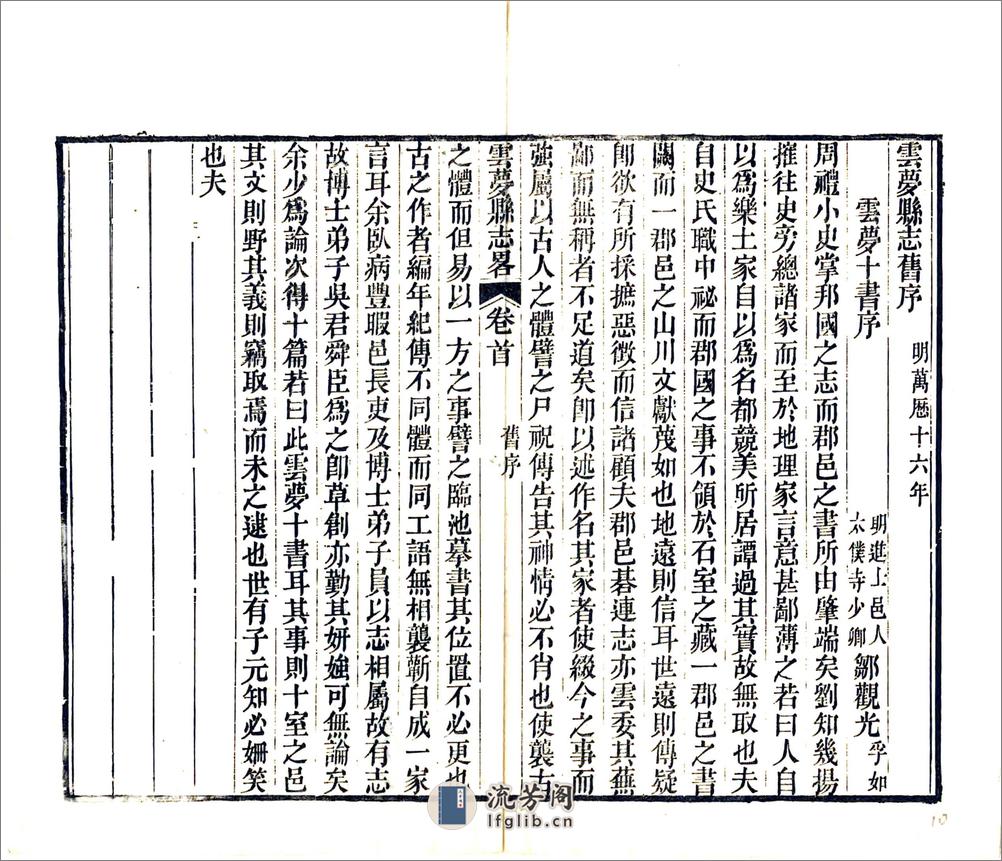 雲夢縣志舊序　明萬厯十六年
雲夢十書序　明進士邑人太僕寺少卿鄒觀光孚如
周禮小史掌邦國之志而郡邑之書所由肇端矣劉知幾揚
搉往史旁總諸家而至於地理家言意甚鄙薄之若曰人自
以爲樂土家自以爲名都競美所居譚過其實故無取也夫
自史氏職中祕而郡國之事不領於石室之藏一郡邑之書
闕而一郡邑之山川文獻茂如也地遠則信耳世遠則傳疑
卽欲有所採摭惡徵而信諸顧夫郡邑碁連志亦雲委其蕪
鄙而無稱者不足道矣卽以述作名其家者使綴今之事而
強屬以古人之體譬之尸祝傳告其神情必不肖也使襲古
雲夢縣志畧　卷首　舊序
之體而但易以一方之事譬之臨池摹書其位置不必更也
古之作者編年紀傳不同體而同工語無相襲蘄自成一家
言耳余臥病豐暇邑長吏及博士弟子員以志相屬故有志
故博士弟子吳君舜臣爲之卽草創亦勤其妍媸可無論矣
余少爲論次得十篇若曰此雲夢十書耳其事則十室之邑
其文則野其義則竊取焉而未之逮也世有子元知必姍笑
也夫
流芳阁
lfglib.cn
10